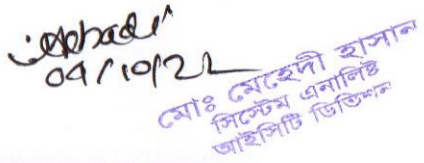 04/10/22
মোঃ মেহেদী হাসান
সিস্টেম এনালিষ্ট
আইসিটি ডিভিশন